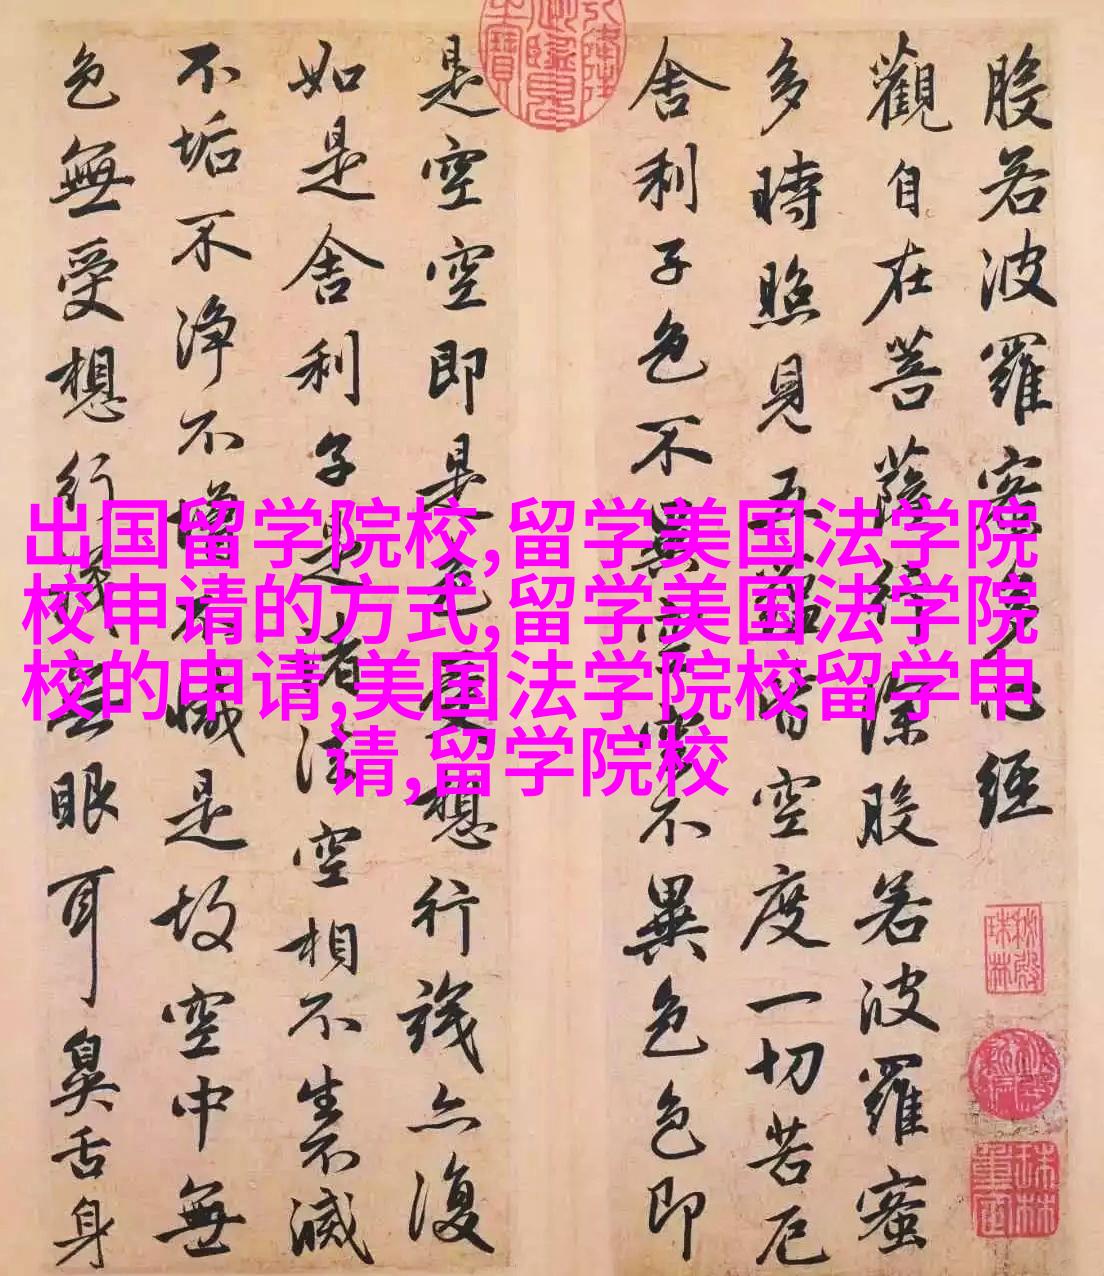 般若波羅密多心經
觀自在菩薩行深般若波羅蜜
多時照見五蘊皆空度一切苦厄
舍利子色不異空空不異色色即
是空空即是色受想行識亦復
如是舍利子是諸法空相不生不滅
不垢不淨不增不減是故空中無
色無受想行識無眼耳鼻舌身
出国留学院校,留学美国法学院
校申请的方式,留学美国法学院
校的申请,美国法学院校留学申
请,留学院校